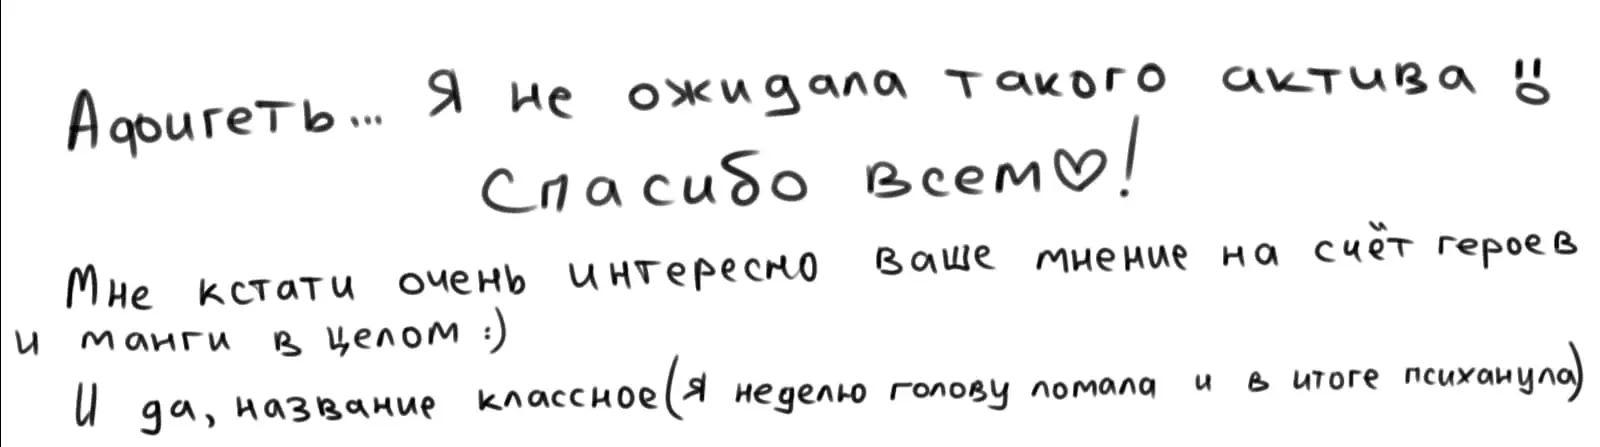 Адоигеть... Я не ожидала такого актива !!0
Спасибо всем♡!
Мне кстати очень интересно ваше мнение на счёт героев
и манги в целом :)
И да, название классное (я неделю голову ломала и в итоге психанула)